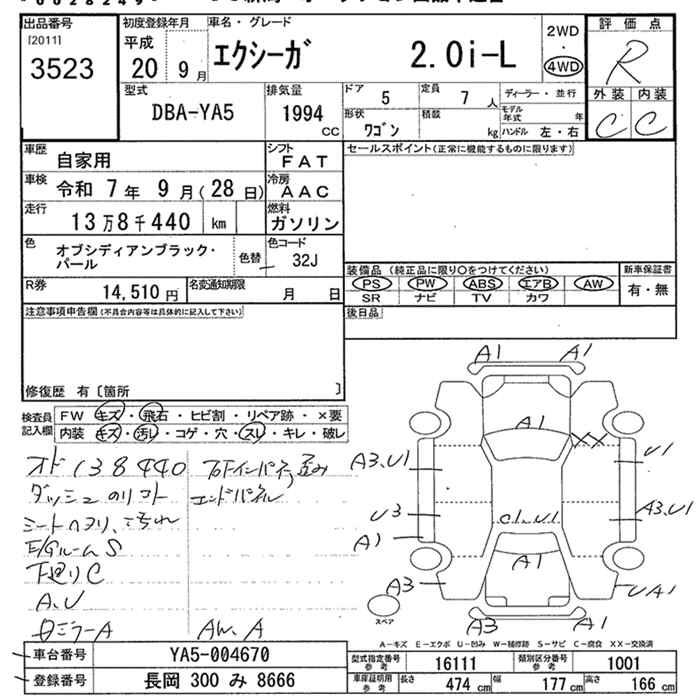 出品番号
[2011]
3523
初度登録年月
平成
20 9月
車名・グレード
エクシーガ 2.0i-L
2WD
・
4WD
評価点
R
外装 内装
C C
型式
DBA-YA5
排気量
1994
CC
ドア 5
定員 7 人
形状
ワゴン
積載
kg
ディーラー・並行
モデル年式 年
ハンドル 左・右
車歴
自家用
シフト
FAT
車検
令和 7年 9月(28日)
冷房
AAC
走行
13万8千440 km
燃料
ガソリン
色
オブシディアンブラック・
パール
色替
色コード
32J
R券
14,510円
名変通知期限
月 日
セールスポイント(正常に機能するものに限ります)
装備品 (純正品に限り○をつけてください)
PS PW ABS エアB AW
SR ナビ TV カワ
新車保証書
有・無
後日品
注意事項申告欄(不具合内容等は具体的に記入して下さい)
修復歴 有〔箇所 〕
検査員
記入欄
FW キズ・飛石・ヒビ割・リペア跡・×要
内装 キズ・汚レ・コゲ・穴・スレ・キレ・破レ
オド138440
ダッシュ
シートヘタリ、
E/GルームS
下廻りC
A、U
ミラーA
エンドパネル
AW、A
A1 A1
A1
XX
A3.U1
U1
U3
A3.U1
A1
A1
A3
UA1
A3 A1
スペア
A-キズ E-エクボ U-凹み W-補修跡 S-サビ C-腐食 XX-交換済
車台番号
YA5-004670
登録番号
長岡 300 み 8666
型式指定番号
参考
16111
類別区分番号
参考
1001
車庫証明用
参考
長さ 474 cm
幅 177 cm
高さ 166 cm